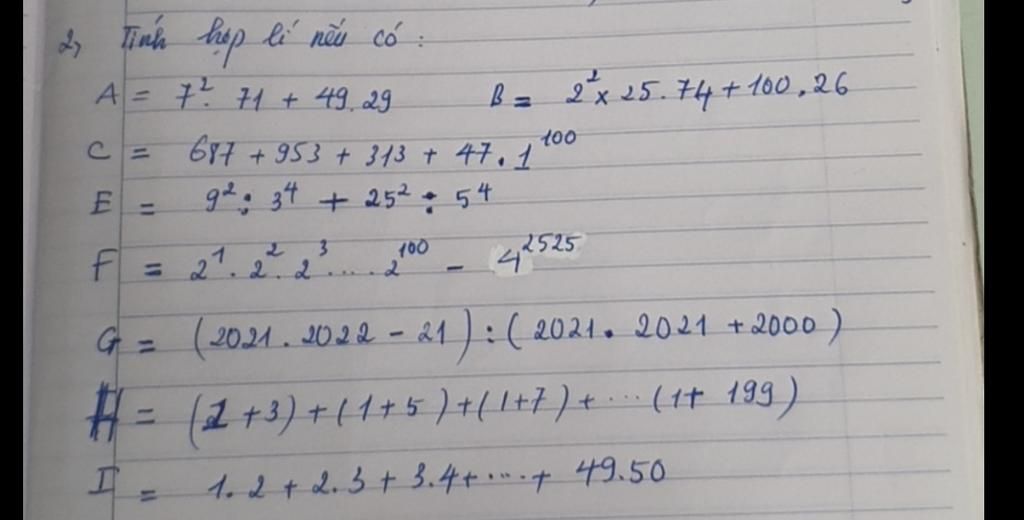 2, Tính hợp lí nếu có :
A = 7². 71 + 49.29 B = 2² x 25.74 + 100.26
C = 687 + 953 + 313 + 47.1¹⁰⁰
E = 9² : 3⁴ + 25² : 5⁴
F = 2¹. 2². 2³ .... 2¹⁰⁰ - 4²⁵²⁵
G = (2021. 2022 - 21) : (2021. 2021 + 2000)
H = (1 + 3) + (1 + 5) + (1 + 7) + ... (1 + 199)
I = 1.2 + 2.3 + 3.4 + ... + 49.50